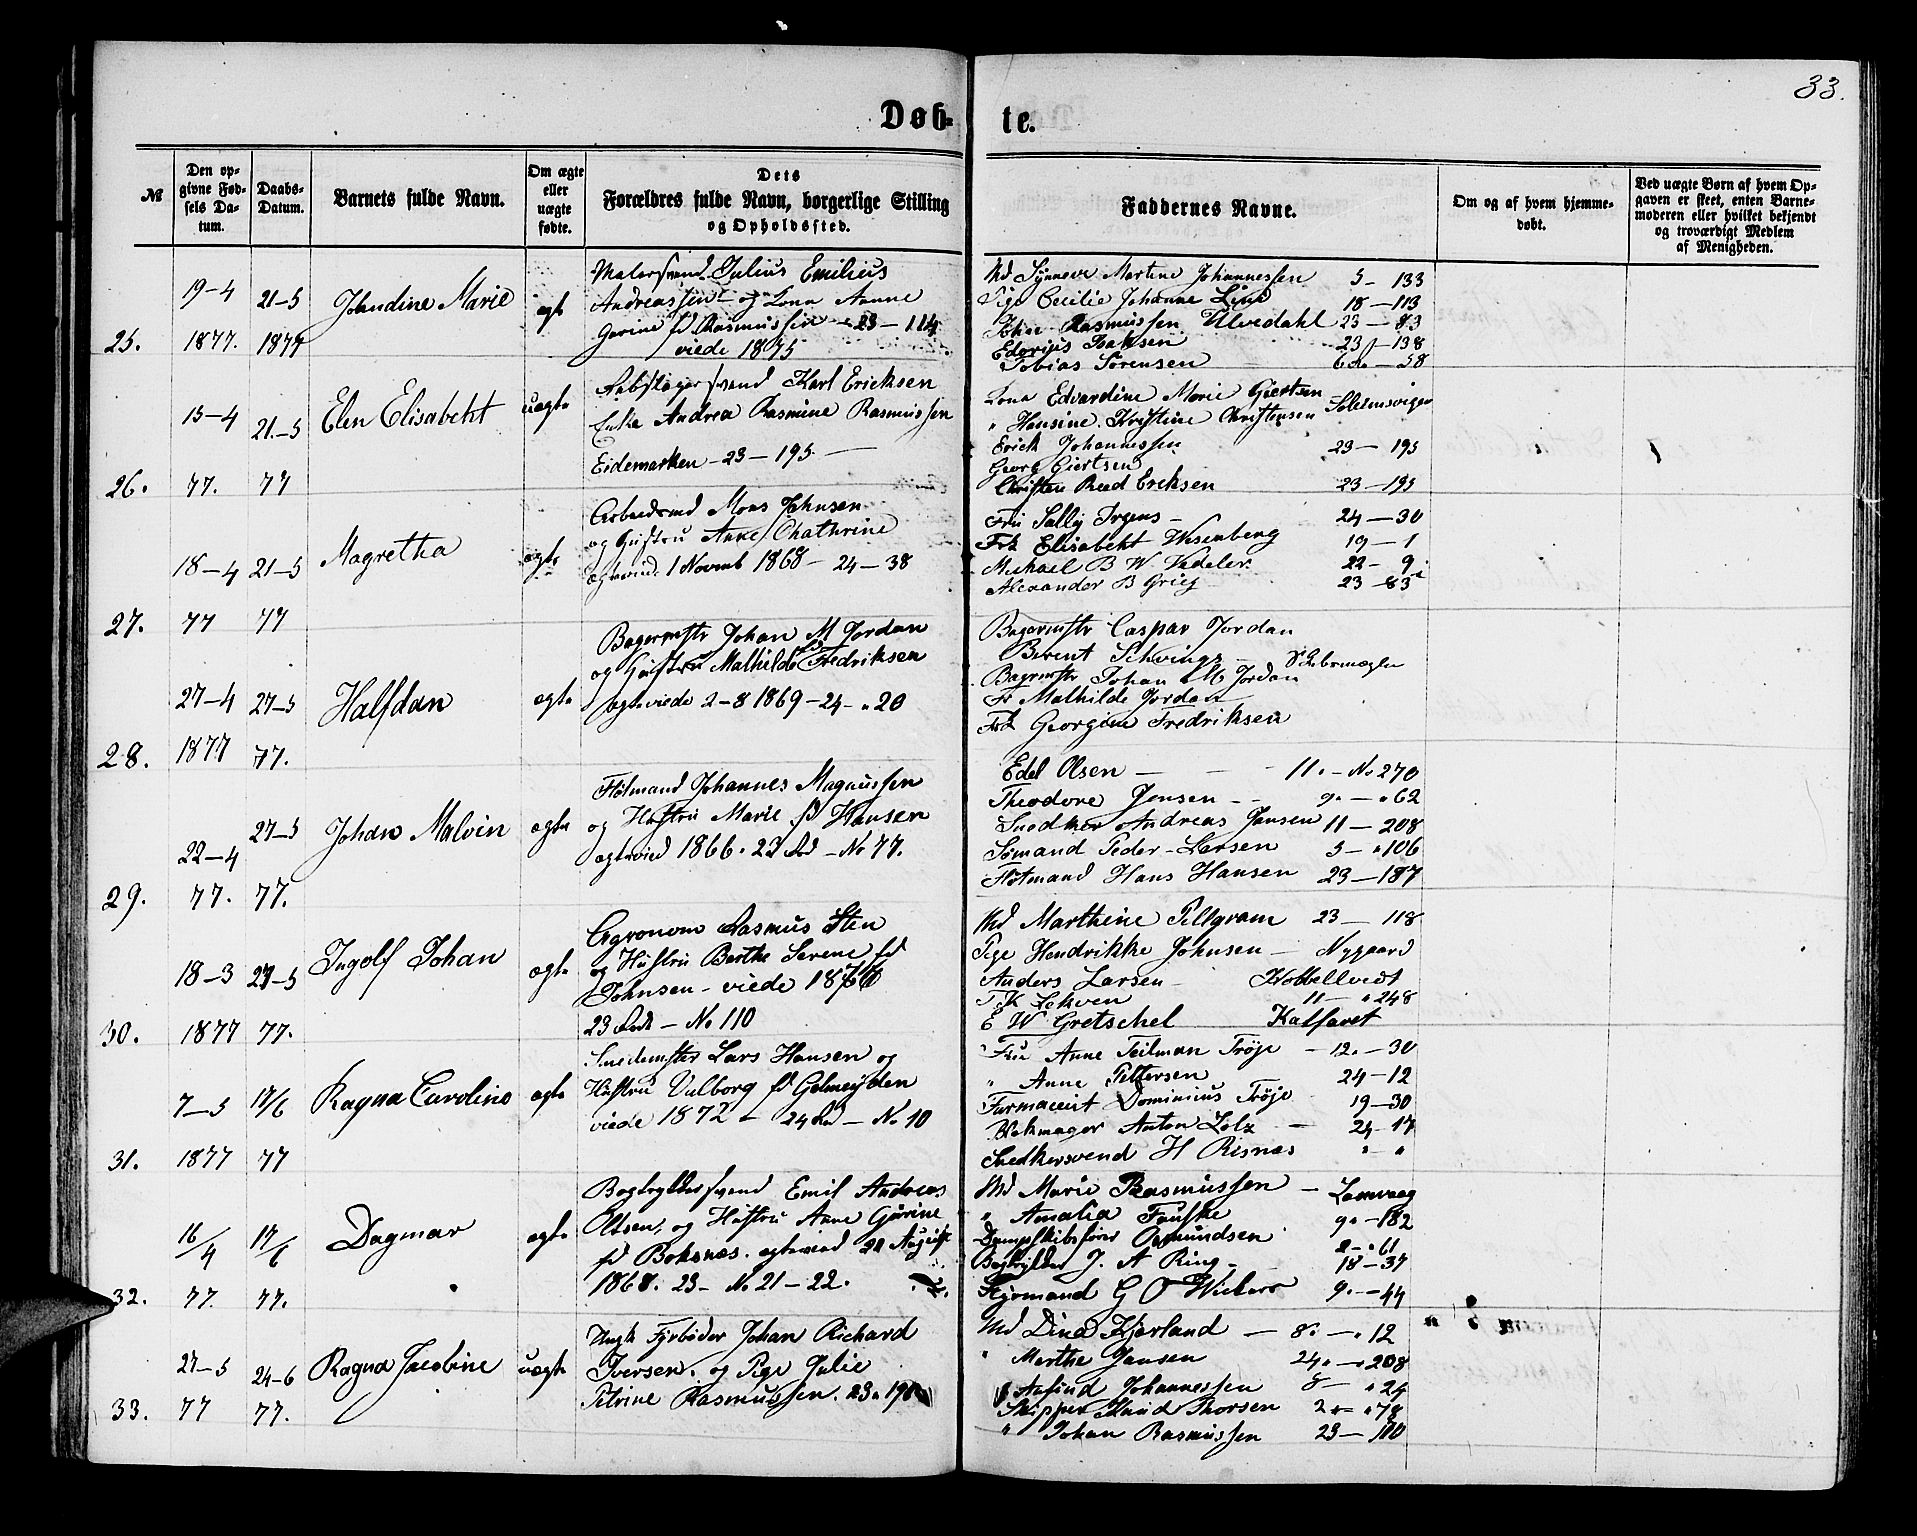 33.
Døb- te.
№
Den op-
givne Fød-
sels Da-
tum.
Daabs-
Datum.
Barnets fulde Navn.
Om ægte
eller
uægte
fødte.
Dets
Forældres fulde Navn, borgerlige Stilling
og Opholdssted.
Faddernes Navne.
Om og af hvem hjemme-
døbt.
Ved uægte Børn af hvem Op-
gaven er skeet, enten Barne-
moderen eller hvilket bekjendt
og troværdigt Medlem
af Menigheden.
25.
19-4
1877.
21-5
1877
Johndine Marie
ægte
Malersvend Julius Emilius
Andreassen og Lona Aanne
Gurine fd Rasmussen 23-114
viede 1875
Md Synneve Martine Johannessen 5-133
Pige Cecilie Johanne Lind 18-113
Rasmussen Ulvedahl 23-83
Isaksen 23-138
Tobias Sørensen 58
26.
15-4
77.
21-5
77
Elen Elisabeht
uægte
Karl Ericksen
Enke Andrea Rasmine Rasmussen
Eidemarken-23-195
Lona Edvardine Marie Giertsen
" Hansine Kristine Christensen Soleimsvigen
Erick Johannessen 23-195
Georg Giertsen
Christen Reed Ericksen 23-195
27.
18-4
77
21-5
77
Magretha
ægte
Arbeidsmd Mons Johnsen
og Hustru Anne Chathrine
ægteviid. 1 Novemb 1868-24-38
Fru Sally Irgens 24-30
Frk Elisabeht Wesenberg 19-1
Michael B W Vedeler 22-9
Alexander B Grieg 23-83
28.
27-4
1877
27-5
77.
Halfdan
ægte
Bagermstr Johan M Jordan
og Hustru Mathilde Fredriksen
ægteviede 2-8 1869-24-"20
Bagermstr Caspar Jordan
Berent
Bagermstr Johan M Jordan
Fr Mathilde Jordan
Frk Georgine Fredriksen
29.
22-4
77.
27-5
77.
Johan Malvin
ægte
Fløtmand Johannes Magnussen
og Hustru Marie fd Hansen
ægtevied 1866. 23 Rd-No 77.
Edel Olsen 11.-No 270
Theodore Jensen 9.-"62
Snedker Andreas Jansen 11-208
Sømand Peder Larsen 5-"106
Fløtmand Hans Hansen 23-187
30.
18-3
1877
27-5
77.
Ingolf Johan
ægte
Agronom Rasmus Sten
og Hustru Berthe Serene fd
Johnsen-viede 1876
23 Rd-No 110
Md Marthine Pillgram 23-118
Pige Hendrikke Johnsen-Nygaard
Anders Larsen-Krobbellvedt
T K Løkven 11-"248
E W Gretschel Kalfaret
31.
7-5
1877
17/6
77
Ragna Caroline
ægte
Smedemster Lars Hansen og
Hustru Valborg fd Golmeyden
viede 1872-24 Rd-No 10
Fru Anne Teilman Trøje-12.-30
" Anne Pettersen 24-12
Farmaceut Dominicus Trøje 19-30
Blokmager Anton Lolz 24-17
Snedkersvend H Risnæs " "
32.
16/4
77.
17/6
77.
Dagmar
ægte
Bogtrykkersvend Emil Andreas
Olsen, og Hustru Anne Gurine
fd Boksnæs. ægteviid 21 August
1868. 23-No 21-22.
Md Marie Rasmussen-Lamvaag
" Amalia Fauske 9.-182
Dampskibsfører Osmundsen 2-"61
Bogtrykker J. A Ring-18-37
Styrmand G O Wiebers 9.-44
33.
27-5
77
24-6
77.
Ragna Jacobine
uægte
Ungk Fyrbøder Johan Richard
Iversen. og Pige Julie
Petrine Rasmussen. 23.
Md Dina Kjerland-8.-"12
" Marthe Jansen 24.-"208
Anfind Johannessen 8-"24
Skipper Knud Thorsen
" Johan Rasmussen 23-100